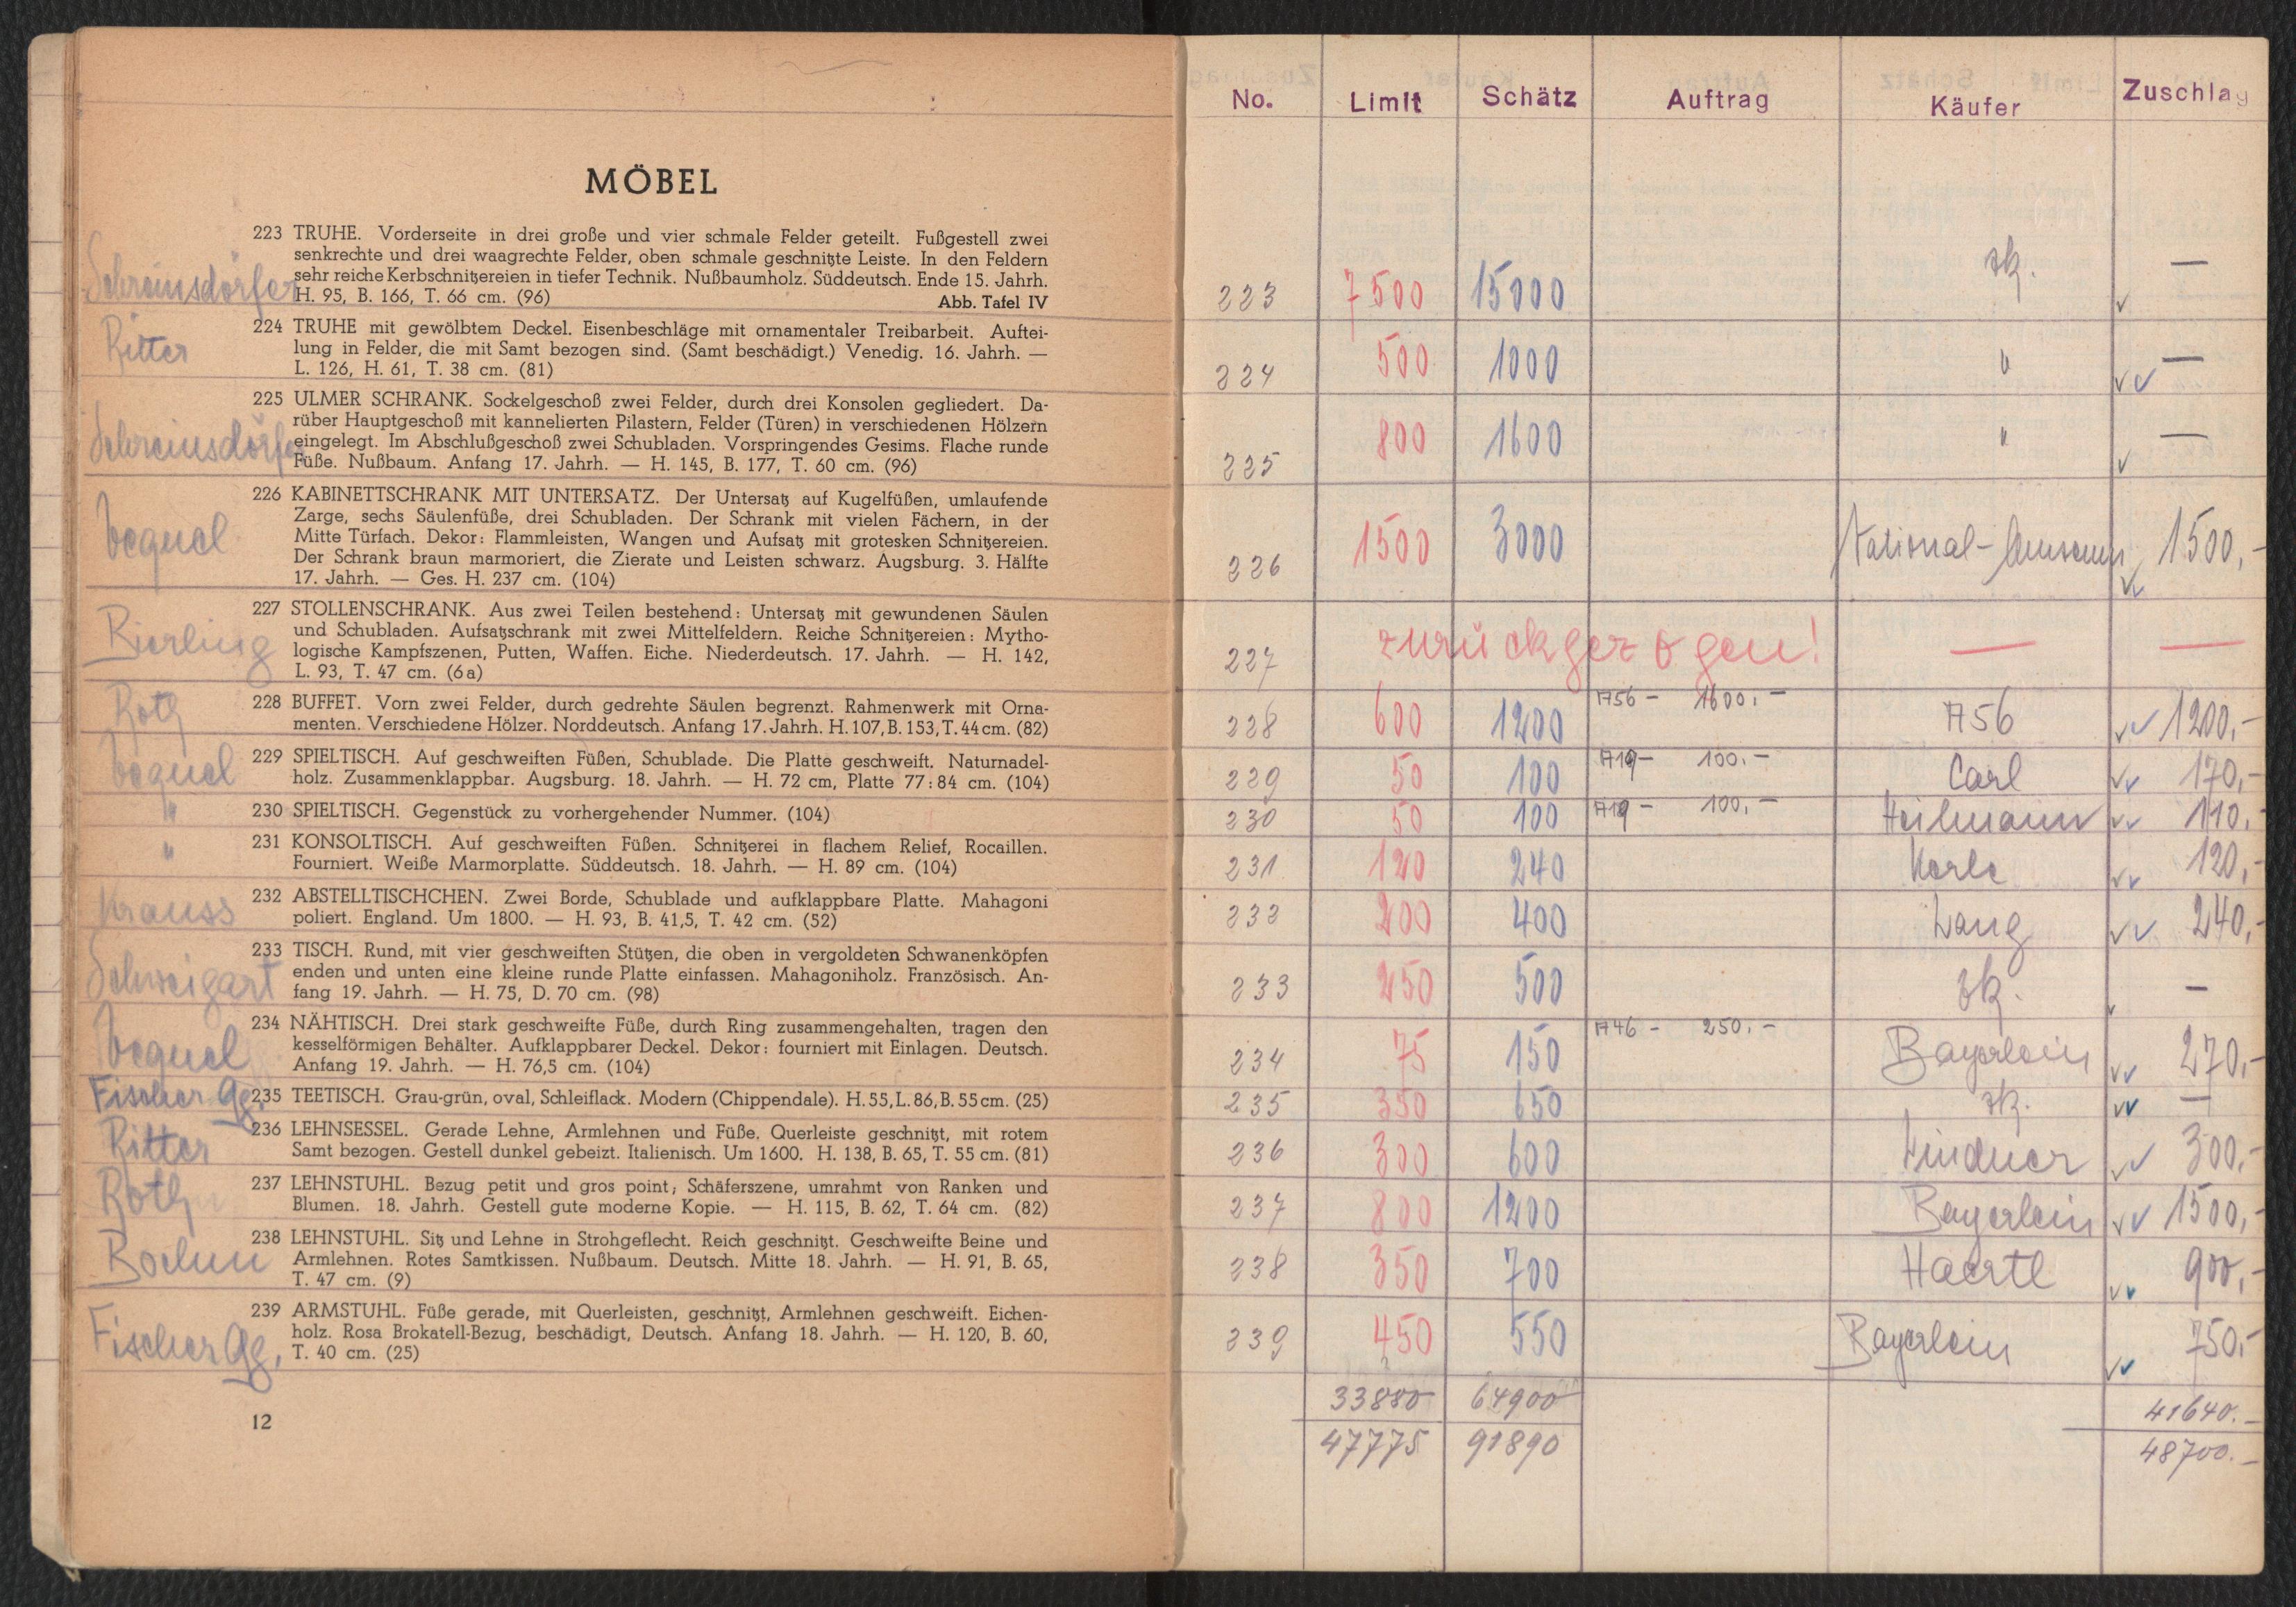 MÖBEL
223 TRUHE. Vorderseite in drei große und vier schmale Felder geteilt. Fußgestell zwei
senkrechte und drei waagrechte Felder, oben schmale geschnitzte Leiste. In den Feldern
sehr reiche Kerbschnitzereien in tiefer Technik. Nußbaumholz. Süddeutsch. Ende 15. Jahrh.
H. 95, B. 166, T. 66 cm. (96) Abb. Tafel IV
Ritter
224 TRUHE mit gewölbtem Deckel. Eisenbeschläge mit ornamentaler Treibarbeit. Auftei-
lung in Felder, die mit Samt bezogen sind. (Samt beschädigt.) Venedig. 16. Jahrh. —
L. 126, H. 61, T. 38 cm. (81)
225 ULMER SCHRANK. Sockelgeschoß zwei Felder, durch drei Konsolen gegliedert. Da-
rüber Hauptgeschoß mit kannelierten Pilastern, Felder (Türen) in verschiedenen Hölzern
eingelegt. Im Abschlußgeschoß zwei Schubladen. Vorspringendes Gesims. Flache runde
Füße. Nußbaum. Anfang 17. Jahrh. — H. 145, B. 177, T. 60 cm. (96)
226 KABINETTSCHRANK MIT UNTERSATZ. Der Untersatz auf Kugelfüßen, umlaufende
Zarge, sechs Säulenfüße, drei Schubladen. Der Schrank mit vielen Fächern, in der
Mitte Türfach. Dekor: Flammleisten, Wangen und Aufsatz mit grotesken Schnitzereien.
Der Schrank braun marmoriert, die Zierate und Leisten schwarz. Augsburg. 3. Hälfte
17. Jahrh. — Ges. H. 237 cm. (104)
Bierling
227 STOLLENSCHRANK. Aus zwei Teilen bestehend: Untersatz mit gewundenen Säulen
und Schubladen. Aufsatzschrank mit zwei Mittelfeldern. Reiche Schnitzereien: Mytho-
logische Kampfszenen, Putten, Waffen. Eiche. Niederdeutsch. 17. Jahrh. — H. 142,
L. 93, T. 47 cm. (6a)
Roth
228 BUFFET. Vorn zwei Felder, durch gedrehte Säulen begrenzt. Rahmenwerk mit Orna-
menten. Verschiedene Hölzer. Norddeutsch. Anfang 17. Jahrh. H. 107, B. 153, T. 44 cm. (82)
229 SPIELTISCH. Auf geschweiften Füßen, Schublade. Die Platte geschweift. Naturnadel-
holz. Zusammenklappbar. Augsburg. 18. Jahrh. — H. 72 cm, Platte 77 : 84 cm. (104)
" 230 SPIELTISCH. Gegenstück zu vorhergehender Nummer. (104)
" 231 KONSOLTISCH. Auf geschweiften Füßen. Schnitzerei in flachem Relief, Rocaillen.
Fourniert. Weiße Marmorplatte. Süddeutsch. 18. Jahrh. — H. 89 cm. (104)
Krauss
232 ABSTELLTISCHCHEN. Zwei Borde, Schublade und aufklappbare Platte. Mahagoni
poliert. England. Um 1800. — H. 93, B. 41,5, T. 42 cm. (52)
Schweigart
233 TISCH. Rund, mit vier geschweiften Stützen, die oben in vergoldeten Schwanenköpfen
enden und unten eine kleine runde Platte einfassen. Mahagoniholz. Französisch. An-
fang 19. Jahrh. — H. 75, D. 70 cm. (98)
234 NÄHTISCH. Drei stark geschweifte Füße, durch Ring zusammengehalten, tragen den
kesselförmigen Behälter. Aufklappbarer Deckel. Dekor: fourniert mit Einlagen. Deutsch.
Anfang 19. Jahrh. — H. 76,5 cm. (104)
Fischer Gg.
235 TEETISCH. Grau-grün, oval, Schleiflack. Modern (Chippendale). H. 55, L. 86, B. 55 cm. (25)
Ritter
236 LEHNSESSEL. Gerade Lehne, Armlehnen und Füße. Querleiste geschnitzt, mit rotem
Samt bezogen. Gestell dunkel gebeizt. Italienisch. Um 1600. H. 138, B. 65, T. 55 cm. (81)
Roth
237 LEHNSTUHL. Bezug petit und gros point; Schäferszene, umrahmt von Ranken und
Blumen. 18. Jahrh. Gestell gute moderne Kopie. — H. 115, B. 62, T. 64 cm. (82)
238 LEHNSTUHL. Sitz und Lehne in Strohgeflecht. Reich geschnitzt. Geschweifte Beine und
Armlehnen. Rotes Samtkissen. Nußbaum. Deutsch. Mitte 18. Jahrh. — H. 91, B. 65,
T. 47 cm. (9)
Fischer Gg.
239 ARMSTUHL. Füße gerade, mit Querleisten, geschnitzt, Armlehnen geschweift. Eichen-
holz. Rosa Brokatell-Bezug, beschädigt, Deutsch. Anfang 18. Jahrh. — H. 120, B. 60,
T. 40 cm. (25)
12
No. Limit Schätz Auftrag Käufer Zuschlag
223 7500 15000 zk. —
224 500 1000 " —
225 800 1600 " —
226 1500 3000 National-Museum 1500,-
227 zurückgezogen! — —
228 600 1200 A56 - 1600,- A56 1200,-
229 50 100 A19 - 100.- Carl 170,-
230 50 100 A19 - 100,- Heilmann 110,-
231 120 240 Karle 120,-
232 200 400 Lang 240,-
233 250 500 zk. —
234 75 150 A46 - 250.- Bayerlein 270,-
235 350 650 zk. —
236 300 600 Lindner 300,-
237 800 1200 Bayerlein 1500,-
238 350 700 Haertl 900,-
239 450 550 Bayerlein 750,-
33880 64900 41640.-
47775 91890 48700.-